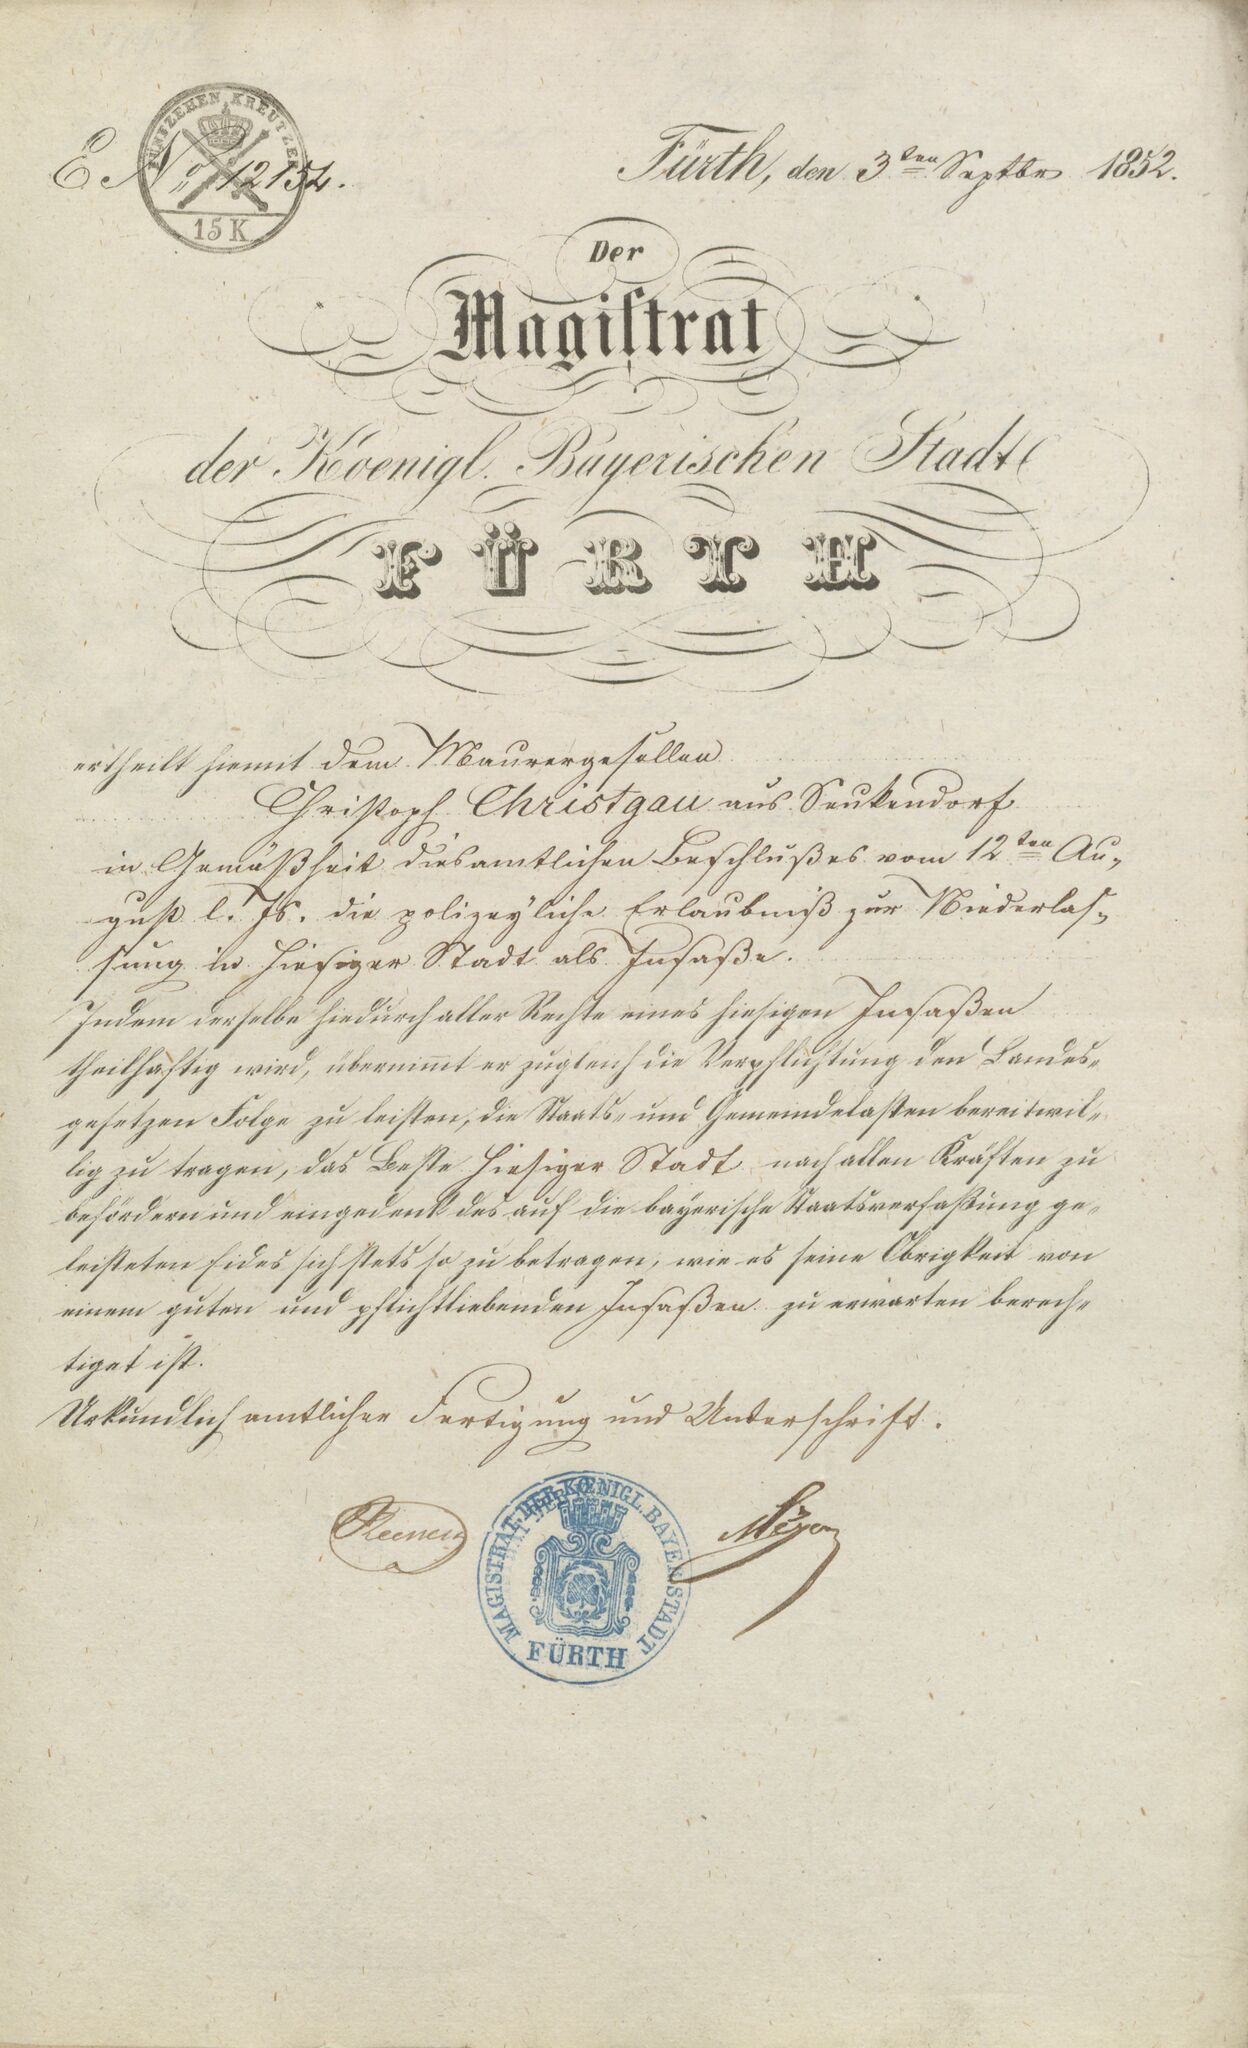 FUNFZEHEN KREUTZER
15 K
E. No. 12154.
Fürth, den 3ten Septbr 1852.
Der
Magistrat
der Koenigl. Bayerischen Stadt
FÜRTH
ertheilt hiemit dem Maurergesellen
Christoph Christgau aus Seukendorf
in Gemäßheit diesamtlichen Beschlußes vom 12ten Au-
gust l. Js. die polizeyliche Erlaubniß zur Niederlas-
sung in hiesiger Stadt als Insaße.
Indem derselbe hiedurch aller Rechte eines hiesigen Insaßen
theilhaftig wird, übernimmt er zugleich die Verpflichtung den Landes-
gesetzen Folge zu leisten, die Staats- und Gemeindelasten bereitwil-
lig zu tragen, das Beste hiesiger Stadt nach allen Kräften zu
befördern und eingedenk des auf die bayerische Staatsverfaßung ge-
leisteten Eides sich stets so zu betragen, wie es seine Obrigkeit von
einem guten und pflichtliebenden Insaßen zu erwarten berech-
tiget ist.
Urkundlich amtlicher Fertigung und Unterschrift.
MAGISTRAT DER KŒNIGL. BAYER. STADT
FÜRTH